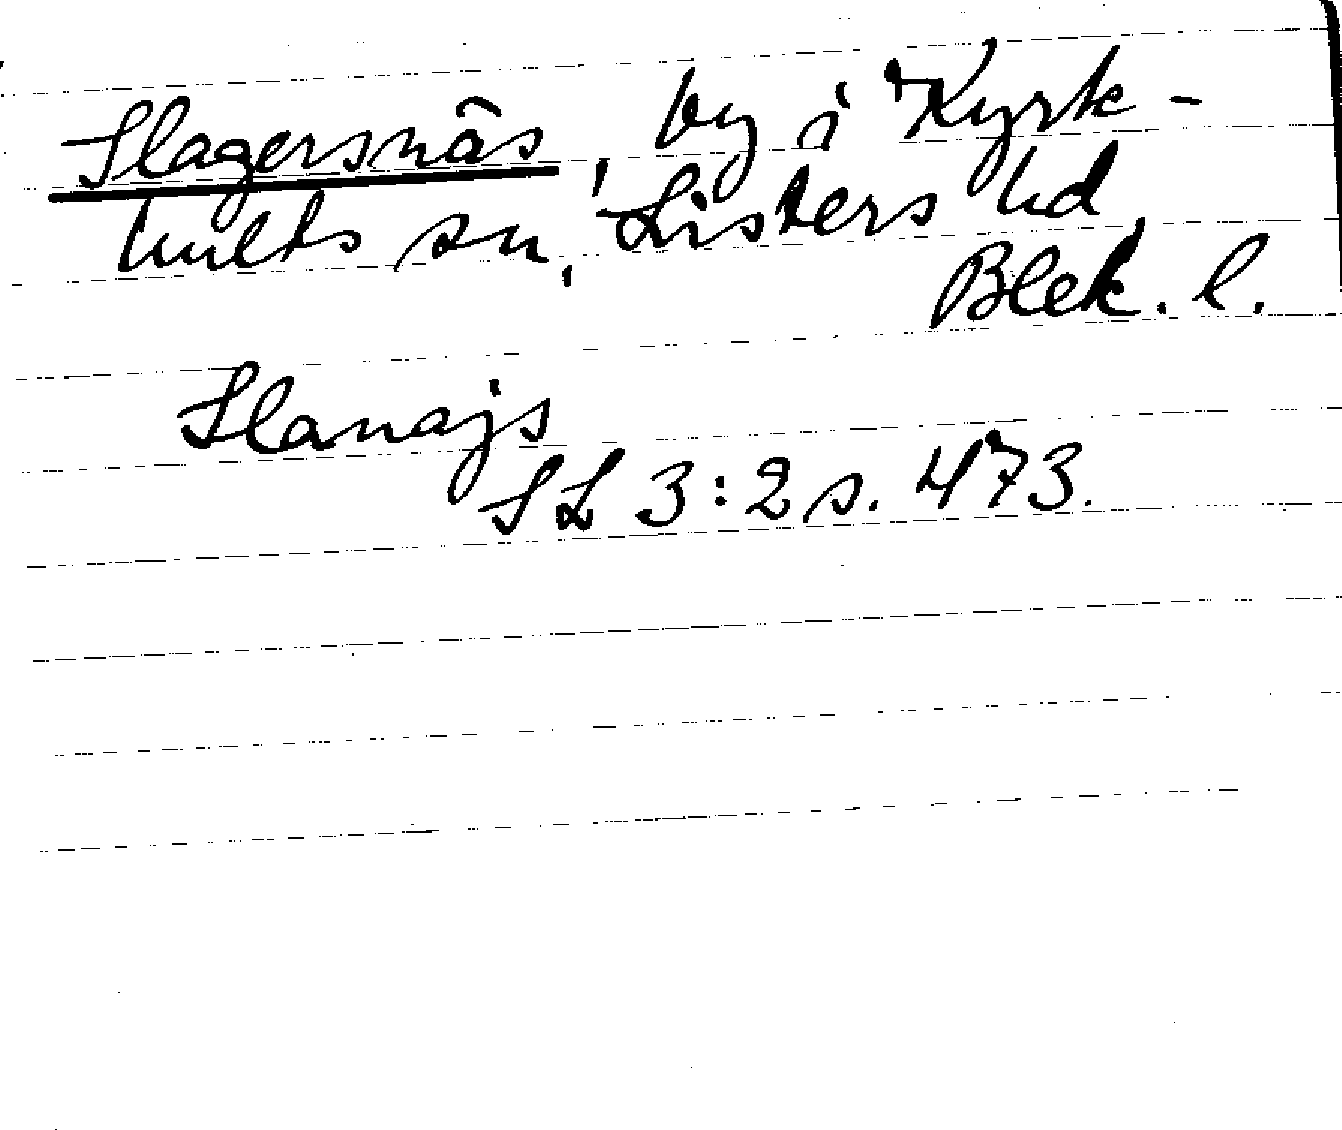 Slagersnäs, by i Kyrk-
hults sn, Listers hd,
Blek. l.
Slanajs
SL 3:2 s. 473.